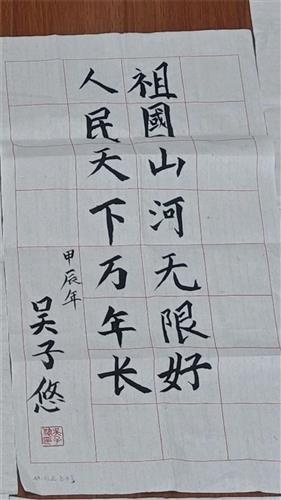 祖國山河无限好
人民天下万年长
甲辰年
吴子悠